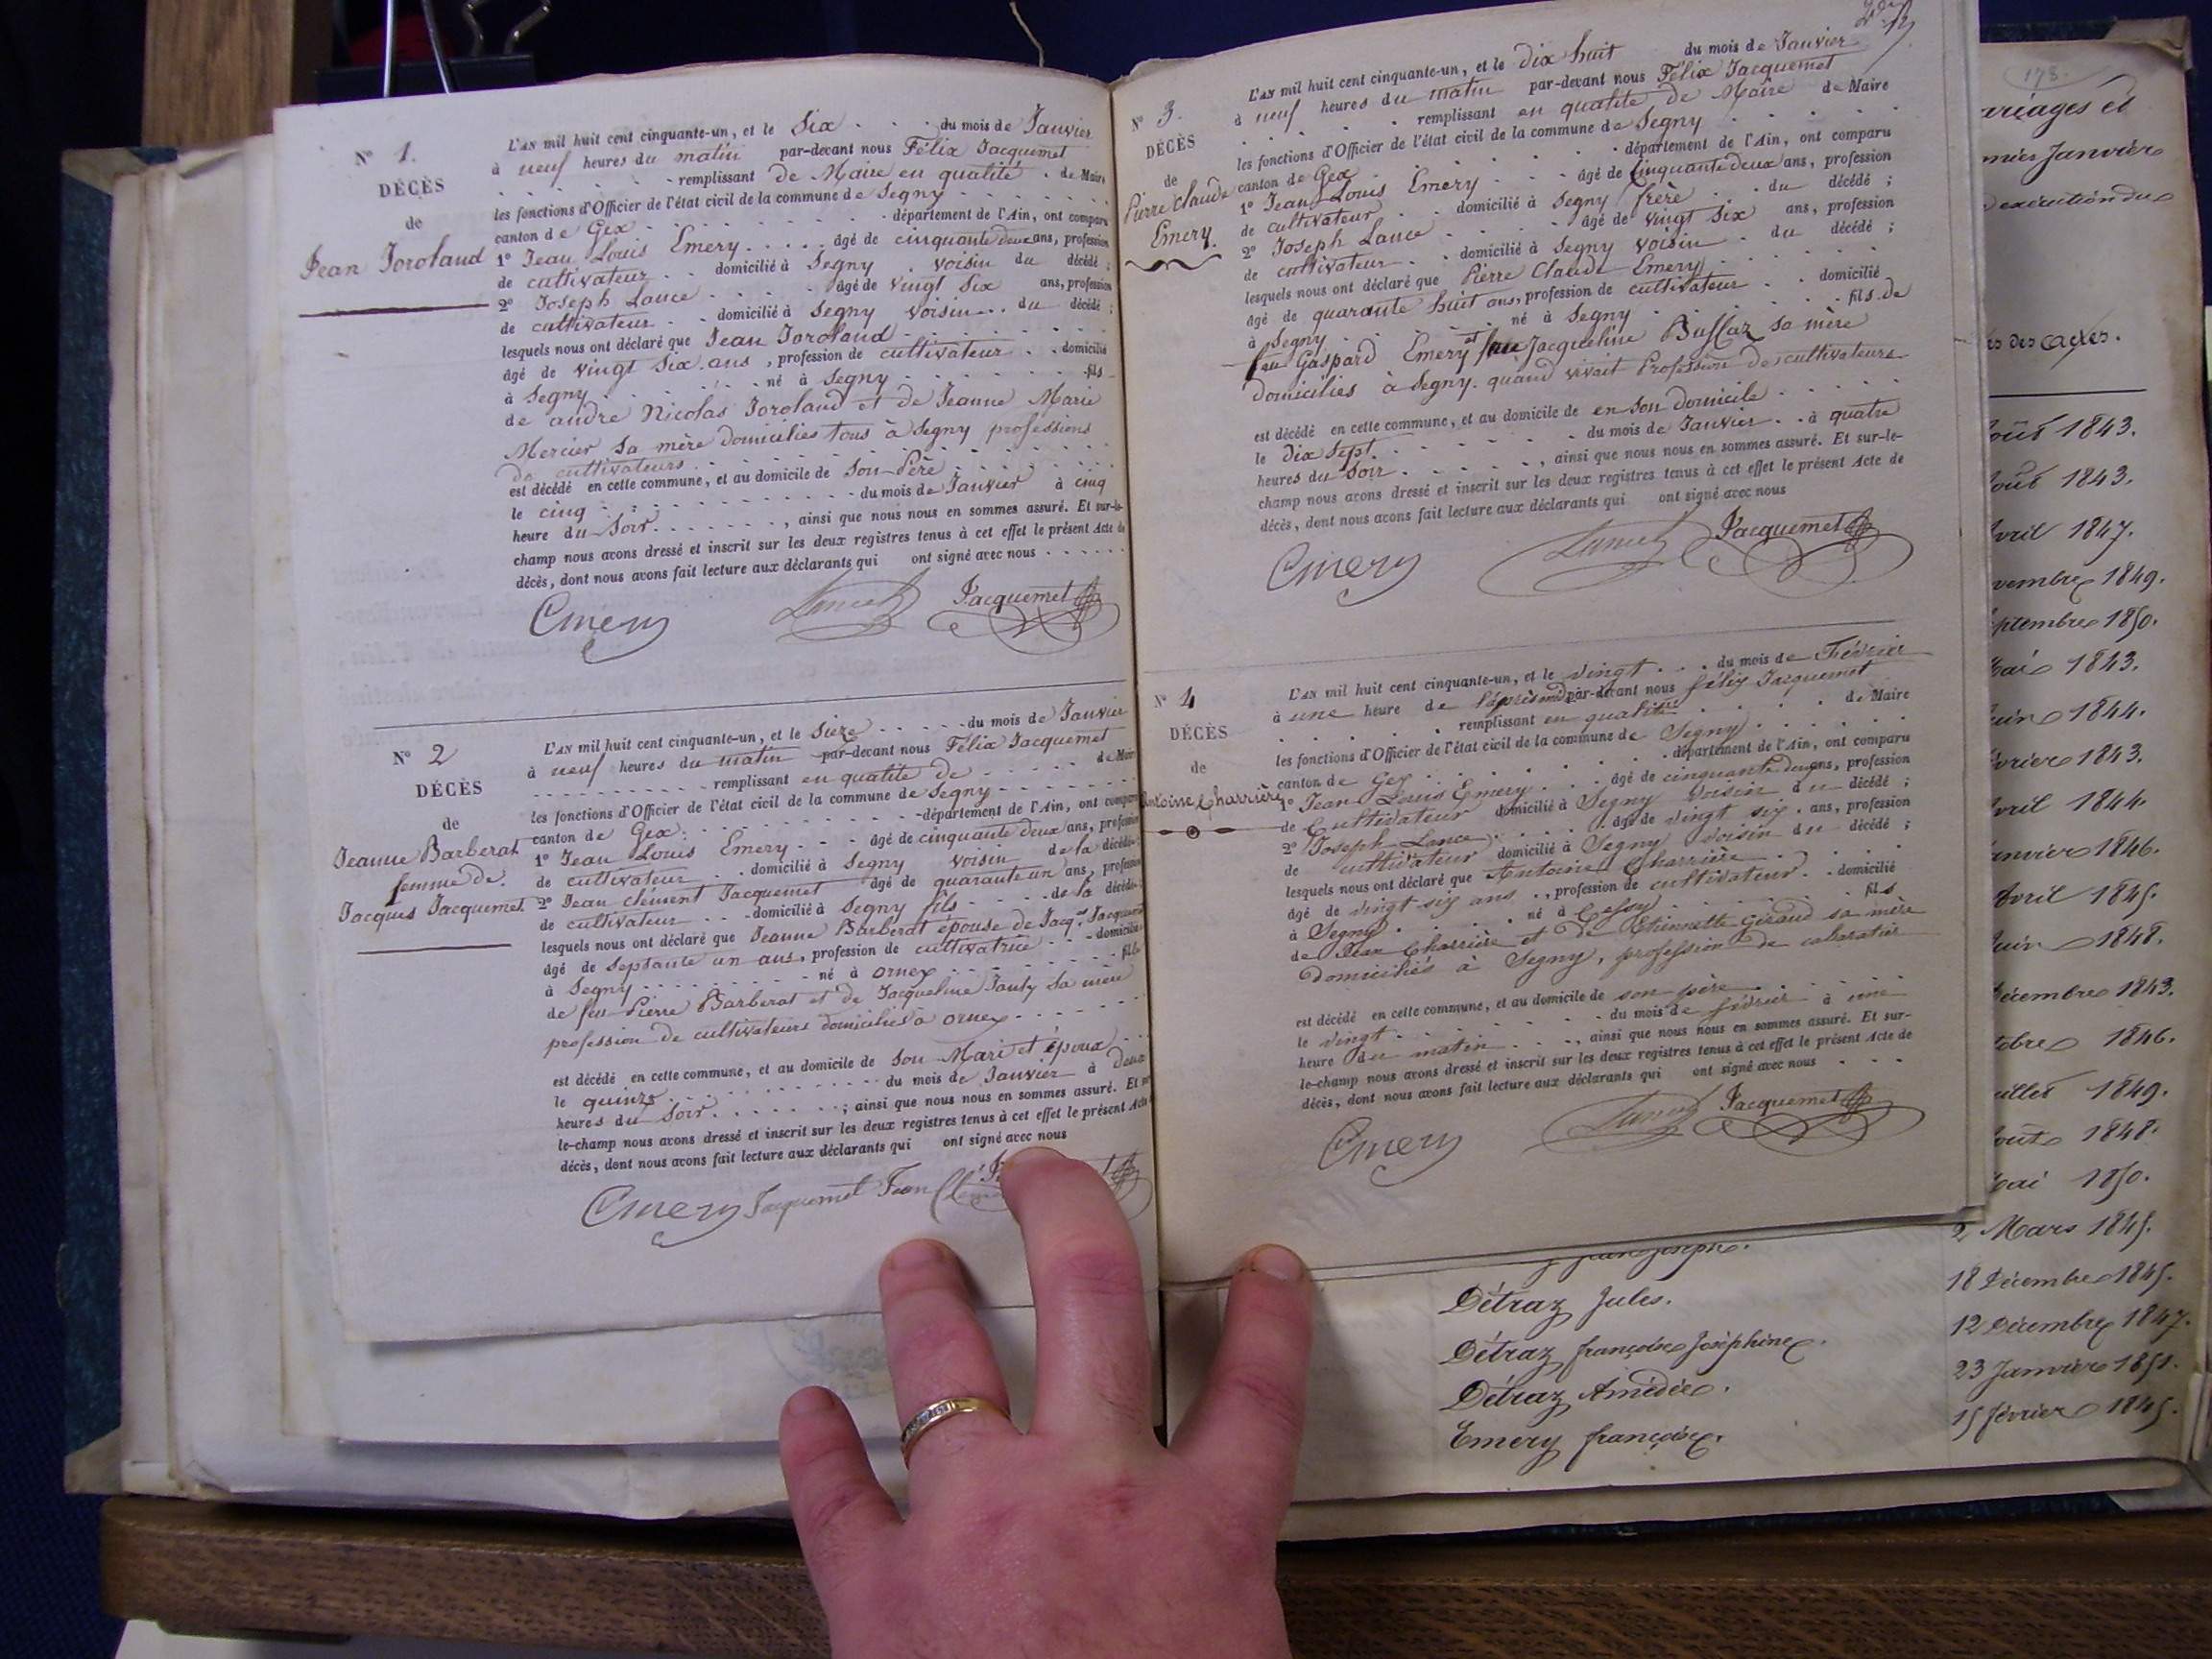 Nº 1.
DÉCÈS
de
Jean Joroland
L'AN mil huit cent cinquante-un, et le Six du mois de Janvier
à neuf heures du matin par-devant nous Félix Jacquemet
remplissant de Maire en qualité de Maire
les fonctions d'Officier de l'état civil de la commune de Segny
canton de Gex département de l'Ain, ont comparu
1º Jean Louis Emery âgé de cinquante deux ans, profession
de cultivateur domicilié à Segny voisin du décédé ;
2º Joseph Lance âgé de vingt Six ans, profession
de cultivateur domicilié à Segny voisin du décédé ;
lesquels nous ont déclaré que Jean Joroland
âgé de vingt Six ans, profession de cultivateur domicilié
à Segny né à Segny fils
de andre Nicolas Joroland et de Jeanne Marie
Mercier Sa mère domiciliés tous à Segny professions
de cultivateurs
est décédé en cette commune, et au domicile de Son Père
le cinq du mois de Janvier à cinq
heure du Soir, ainsi que nous nous en sommes assuré. Et sur-le-
champ nous avons dressé et inscrit sur les deux registres tenus à cet effet le présent Acte de
décès, dont nous avons fait lecture aux déclarants qui ont signé avec nous
Emery Jacquemet
Nº 2
DÉCÈS
de
Jeanne Barberat
femme de
Jacques Jacquemet
L'AN mil huit cent cinquante-un, et le Sieze du mois de Janvier
à neuf heures du matin par-devant nous Félix Jacquemet
remplissant en qualité de de Maire
les fonctions d'Officier de l'état civil de la commune de Segny
canton de Gex département de l'Ain, ont comparu
1º Jean Louis Emery âgé de cinquante deux ans, profession
de cultivateur domicilié à Segny voisin de la décédé
2º Jean clément Jacquemet âgé de quarante un ans, profession
de cultivateur domicilié à Segny fils de la décédé
lesquels nous ont déclaré que Jeanne Barberat épouse de Jacq.es Jacquemet
âgé de Septante un ans, profession de cultivatrice domicilié
à Segny né à ornex fille
de feu Pierre Barberat et de Jacqueline Janty Sa mère
profession de cultivateurs domiciliés à ornex
est décédé en cette commune, et au domicile de Son Mari et époux
le quinze du mois de Janvier à deux
heures du Soir ; ainsi que nous nous en sommes assuré. Et sur
le-champ nous avons dressé et inscrit sur les deux registres tenus à cet effet le présent Acte
décès, dont nous avons fait lecture aux déclarants qui ont signé avec nous
Emery Jacquemet Jean
Nº 3.
DÉCÈS
de
Pierre Claude
Emery.
L'AN mil huit cent cinquante-un, et le dix huit du mois de Janvier
à neuf heures du matin par-devant nous Félix Jacquemet
remplissant en qualité de Maire de Maire
les fonctions d'Officier de l'état civil de la commune de Segny
canton de Gex département de l'Ain, ont comparu
1º Jean Louis Emery âgé de Cinquante deux ans, profession
de cultivateur domicilié à Segny frère du décédé ;
2º Joseph Lance âgé de vingt Six ans, profession
de cultivateur domicilié à Segny voisin du décédé ;
lesquels nous ont déclaré que Pierre Claude Emery
âgé de quarante huit ans, profession de cultivateur domicilié
à Segny né à Segny fils de
feu Gaspard Emery et feue Jacqueline Buffaz sa mère
domiciliés à Segny quand vivait Profession de cultivateurs
est décédé en cette commune, et au domicile de en Son domicile
le dix Sept du mois de Janvier à quatre
heures du Soir, ainsi que nous nous en sommes assuré. Et sur-le-
champ nous avons dressé et inscrit sur les deux registres tenus à cet effet le présent Acte de
décès, dont nous avons fait lecture aux déclarants qui ont signé avec nous
Emery Jacquemet
Nº 4
DÉCÈS
de
Antoine Charrière
L'AN mil huit cent cinquante-un, et le vingt du mois de Février
à une heure de l'après midi par-devant nous félix Jacquemet
remplissant en qualité de Maire
les fonctions d'Officier de l'état civil de la commune de Segny
canton de Gex département de l'Ain, ont comparu
1º Jean Louis Emery âgé de cinquante deux ans, profession
de Cultivateur domicilié à Segny voisin du décédé ;
2º Joseph Lance âgé de vingt six ans, profession
de cultivateur domicilié à Segny voisin du décédé ;
lesquels nous ont déclaré que Antoine Charrière
âgé de vingt six ans, profession de cultivateur domicilié
à Segny né à Cessy fils
de Jean Charrière et de Etiennette Giraud sa mère
domiciliés à Segny, profession de cabaratier
est décédé en cette commune, et au domicile de son père
le vingt du mois de février à une
heure du matin, ainsi que nous nous en sommes assuré. Et sur-
le-champ nous avons dressé et inscrit sur les deux registres tenus à cet effet le présent Acte de
décès, dont nous avons fait lecture aux déclarants qui ont signé avec nous
Emery Jacquemet
178.
ariages et
mier Janvier
execution du
es des actes.
août 1843.
août 1843.
avril 1847.
vembre 1849.
ptembre 1850.
Mai 1843.
uin 1844.
évrier 1843.
avril 1844.
anvier 1846.
Avril 1845.
Juin 1848.
Décembre 1843.
tobre 1846.
uillet 1849.
août 1848.
Mai 1850.
2 Mars 1845.
18 Décembre 1845.
Détraz Jules. 12 Décembre 1847.
Détraz françoise Joséphine. 23 Janvier 1851.
Détraz Amédée. 15 février 1845.
Emery françoise.